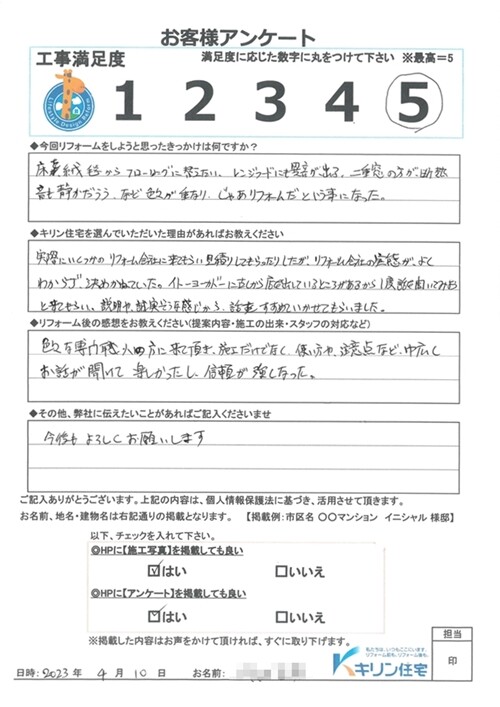 お客様アンケート
工事満足度
満足度に応じた数字に丸をつけて下さい ※最高＝5
1 2 3 4 5
◆今回リフォームをしようと思ったきっかけは何ですか?
フローリングに替えたい、レンジフードにも異音が出る、二重窓の方が断然
音も静かだろう、など が重なり、じゃあリフォームだという事になった。
◆キリン住宅を選んでいただいた理由があればお教えください
実際にいくつかのリフォーム会社に来てもらい見積りしてもらったりしたが、リフォーム会社の実態がよく
わからず、決めかねていた。イトーヨーカドーに古しから店を出しているところがあるから1度話を聞いてみたら
と来てもらい、説明や誠実そうな感じから、話をすすめていかせてもらいました。
◆リフォーム後の感想をお教えください(提案内容・施工の出来・スタッフの対応など)
な専門職人の方に来て頂き、施工だけでなく、使い方や注意点など、巾広く
お話が聞けて楽しかったし、信頼が強くなった。
◆その他、弊社に伝えたいことがあればご記入くださいませ
今後もよろしくお願いします
ご記入ありがとうございます。上記の内容は、個人情報保護法に基づき、活用させて頂きます。
お名前、地名・建物名は右記通りの掲載となります。 【掲載例：市区名 〇〇マンション イニシャル 様邸】
以下、チェックを入れて下さい。
◎HPに【施工写真】を掲載しても良い
☑はい □いいえ
◎HPに【アンケート】を掲載しても良い
☑はい □いいえ
※掲載した内容はお声をかけて頂ければ、すぐに取り下げます。
私たちは、いつもここにいます。
リフォーム前も、リフォーム後も。
キリン住宅
担当
印
日時：2023年 4月 10日 お名前：